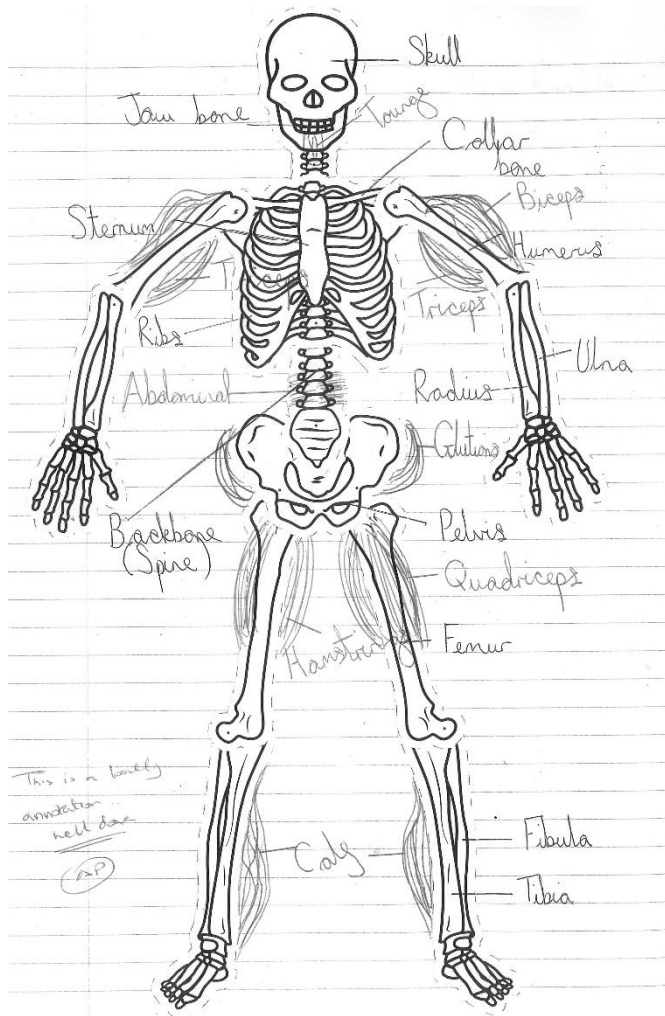 Skull
Jaw bone
Tounge
Collar
bone
Biceps
Sternum
Humerus
Triceps
Triceps
Ribs
Ulna
Abdominal
Radius
Glutions
Backbone
(Spine)
Pelvis
Quadriceps
Hamstrings
Femur
This is a lovely
annotation
well done
AP
Calf
Fibula
Tibia